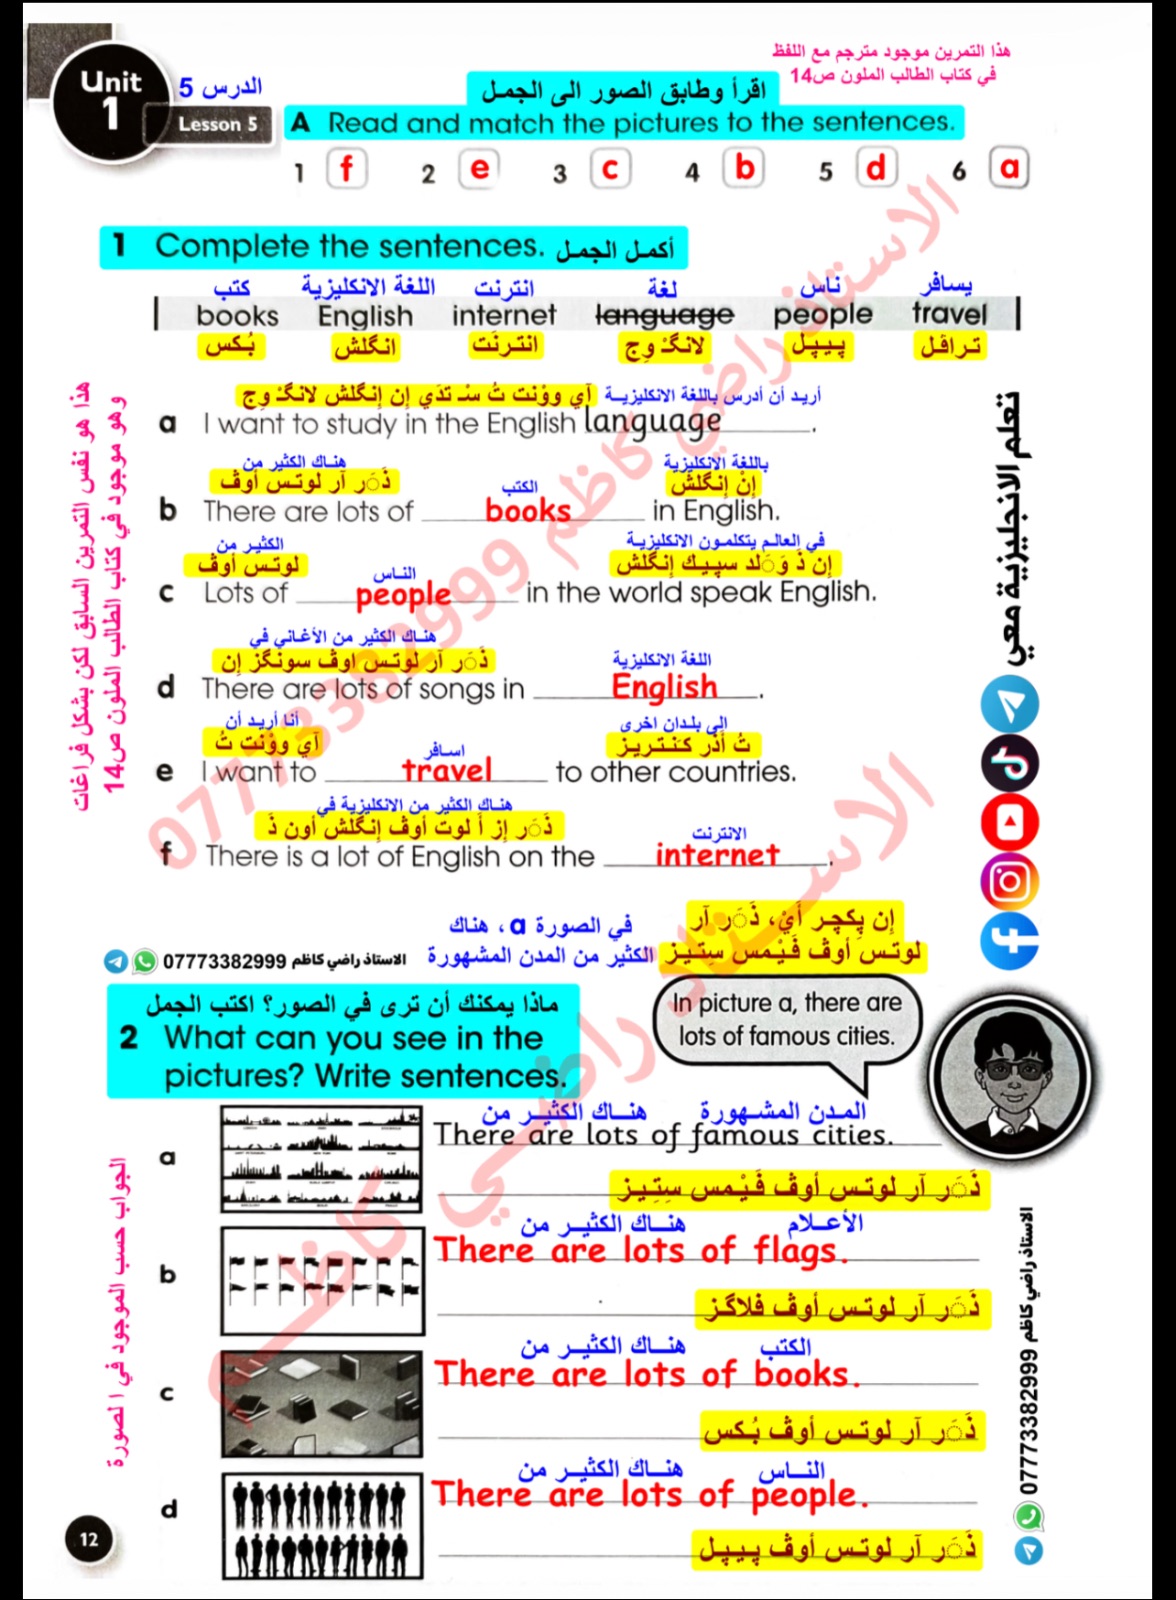 هذا التمرين موجود مترجم مع اللفظ
في كتاب الطالب الملون ص14
Unit
1
الدرس 5
Lesson 5
اقرأ وطابق الصور الى الجمل
A Read and match the pictures to the sentences.
1 f 2 e 3 c 4 b 5 d 6 a
1 Complete the sentences. أكمل الجمل
كتب اللغة الانكليزية انترنت لغة ناس يسافر
books English internet language people travel
بُكس انگلش انترنَت لانگـْ وِج پيپِل تراڤل
هذا هو نفس التمرين السابق لكن بشكل فراغات
وهو موجود في كتاب الطالب الملون ص14
آي ووْنت تُ سـْ تدَي إن إنگلش لانگـْ وِج أريد أن أدرس باللغة الانكليزية
a I want to study in the English language.
هناك الكثير من الكتب باللغة الإنكليزية
ذَر آر لوتس أوڤ إنْ إنگلش
b There are lots of books in English.
الكثير من الناس في العالم يتكلمون الانكليزية
لوتس أوڤ إن ذَ وَلد سپيك إنگلش
c Lots of people in the world speak English.
هناك الكثير من الأغاني في اللغة الانكليزية
ذَر آر لوتس اوڤ سونگز إن
d There are lots of songs in English.
أنا أريد أن اسافر إلى بلدان اخرى
آي ووْنت تُ تُ أذَر كنتريز
e I want to travel to other countries.
هناك الكثير من الانكليزية في الانترنت
ذَر إز أ لوت أوڤ إنگلش أون ذَ
f There is a lot of English on the internet.
تعلم الانجليزية معي
في الصورة a، هناك
الكثير من المدن المشهورة
إن پكچر أيْ، ذَر آر
لوتس أوڤ فَيْمس ستيز
الاستاذ راضي كاظم 07773382999
In picture a, there are
lots of famous cities.
ماذا يمكنك أن ترى في الصور؟ اكتب الجمل
2 What can you see in the
pictures? Write sentences.
هناك الكثير من المدن المشهورة
a There are lots of famous cities.
ذَر آر لوتس أوڤ فَيْمس سِتِيز
هناك الكثير من الأعلام
b There are lots of flags.
ذَر آر لوتس أوڤ فلاگز
هناك الكثير من الكتب
c There are lots of books.
ذَر آر لوتس أوڤ بُكس
هناك الكثير من الناس
d There are lots of people.
ذَر آر لوتس أوڤ پيپِل
الجواب حسب الموجود في الصورة
الاستاذ راضي كاظم 07773382999
12
الاستاذ راضي كاظم 07773382999
الاستاذ راضي كاظم